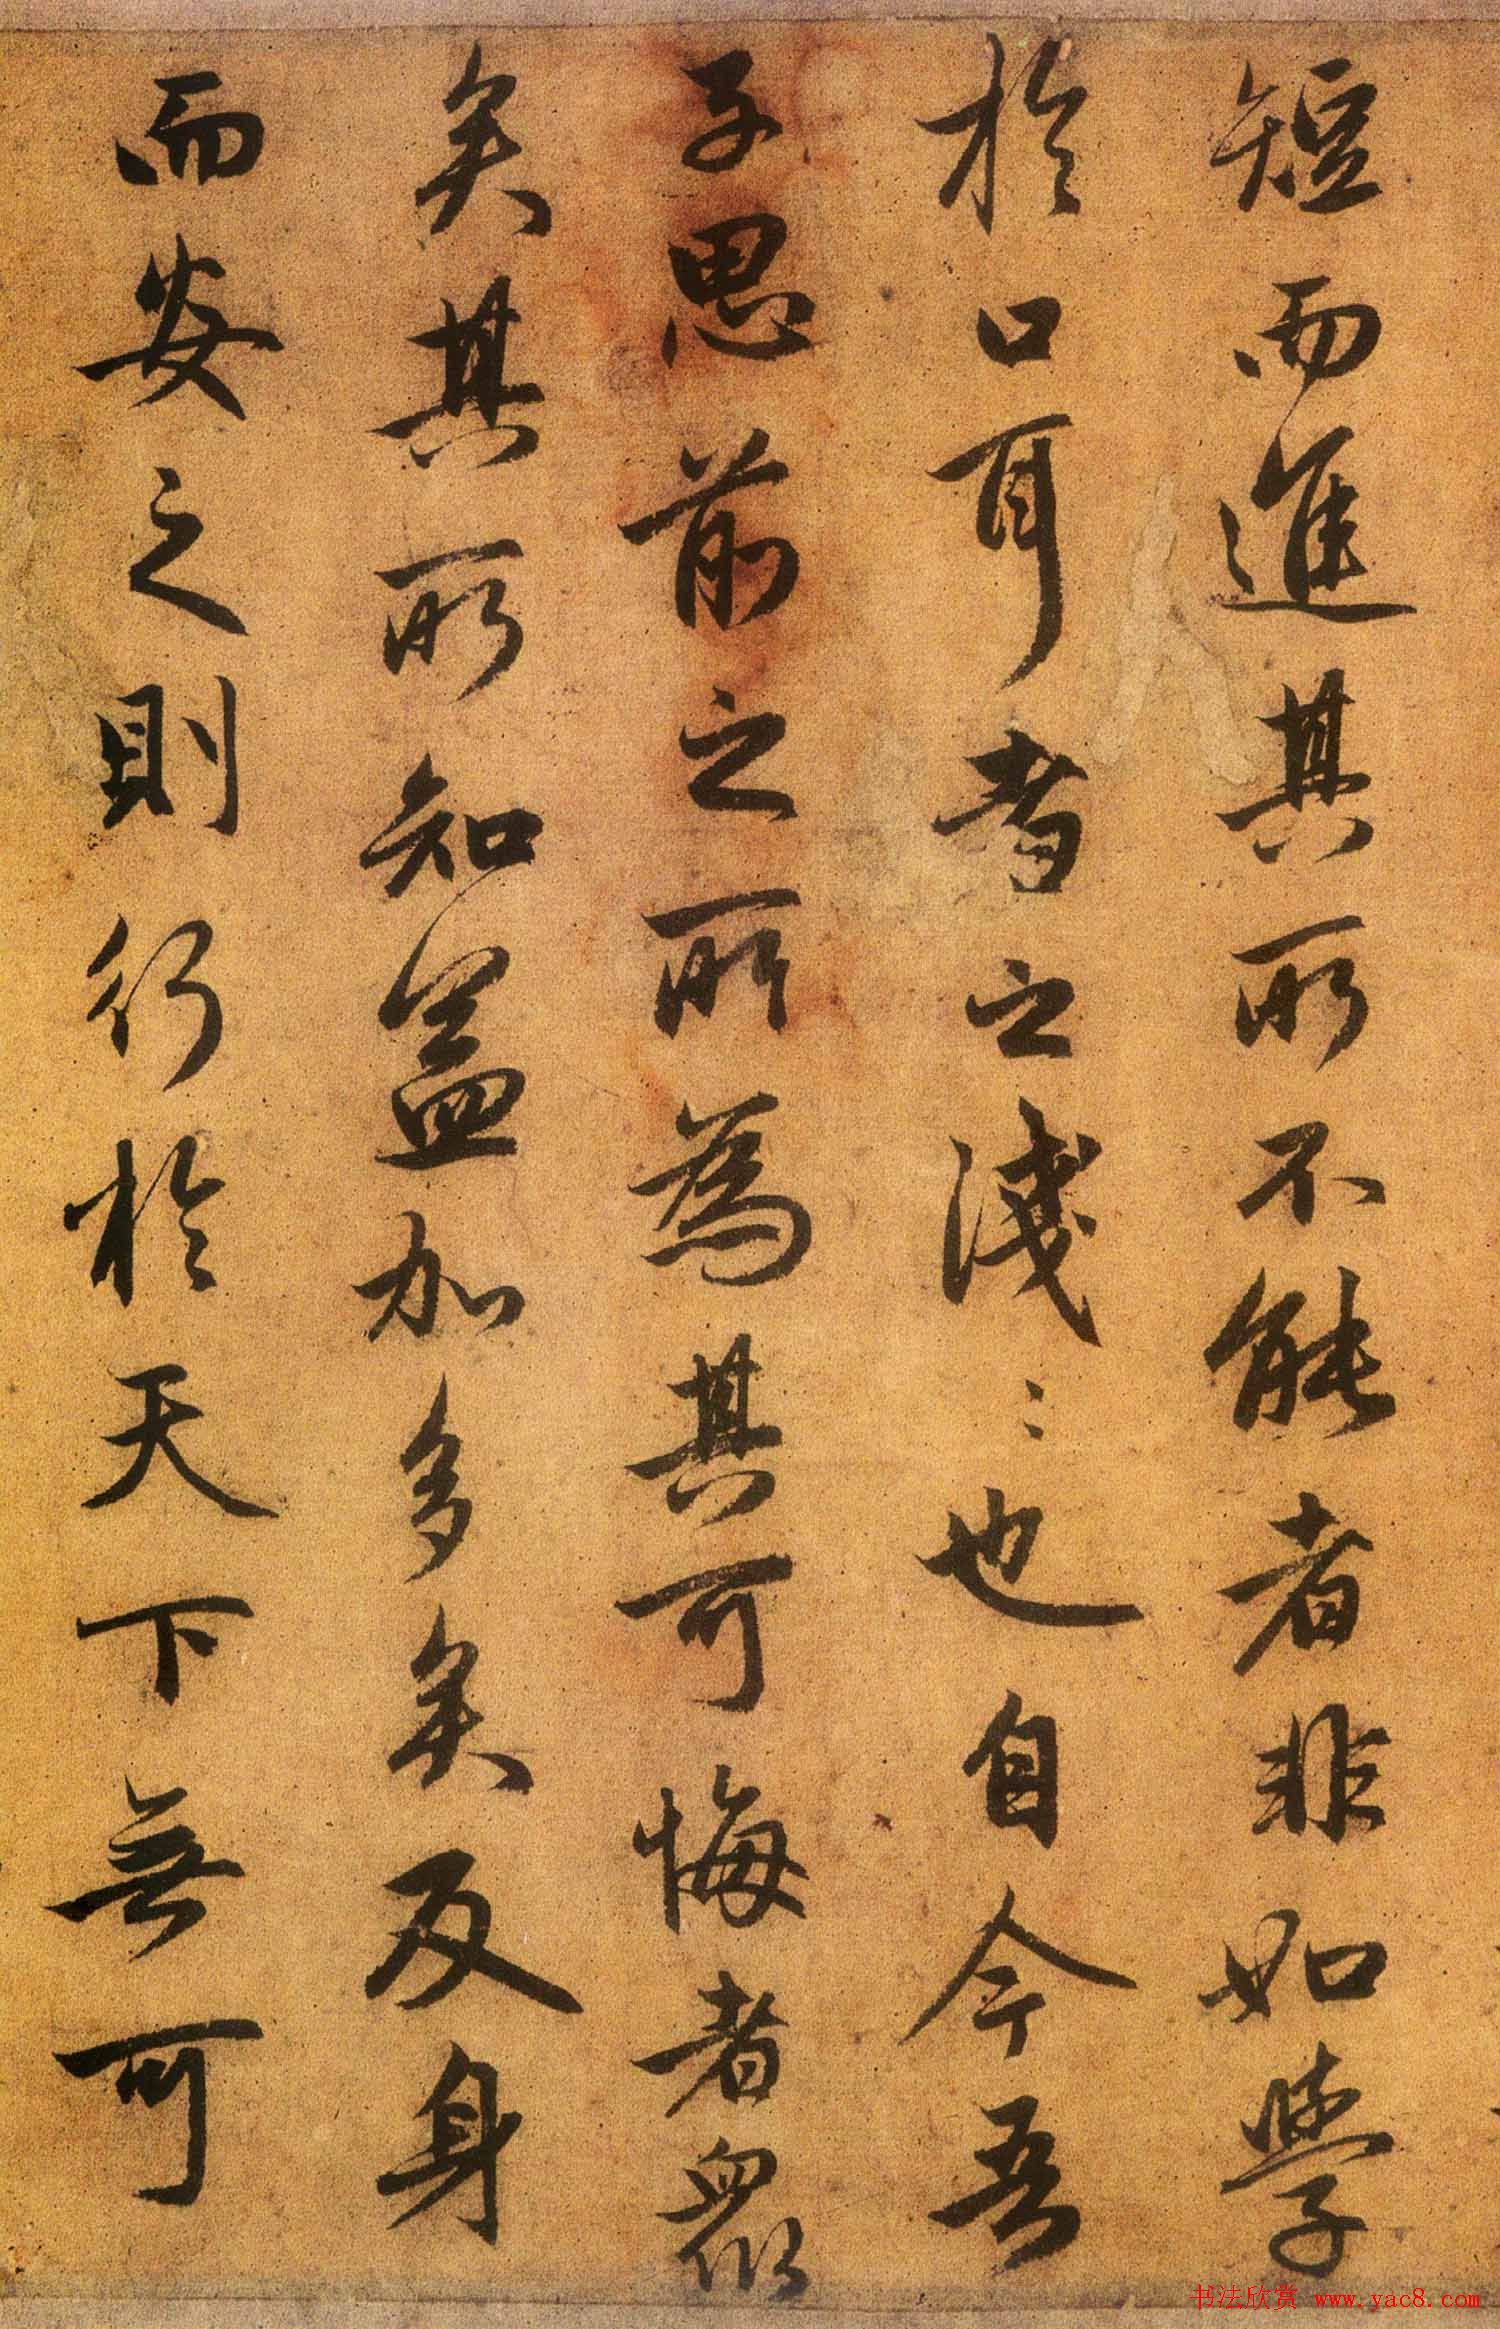 短而進其所不能者非如學
於口耳者之淺〻也自今吾
子思前之所爲其可悔者衆
矣其所知益加多矣反身
而安之則行於天下無可
书法欣赏 www.yac8.com